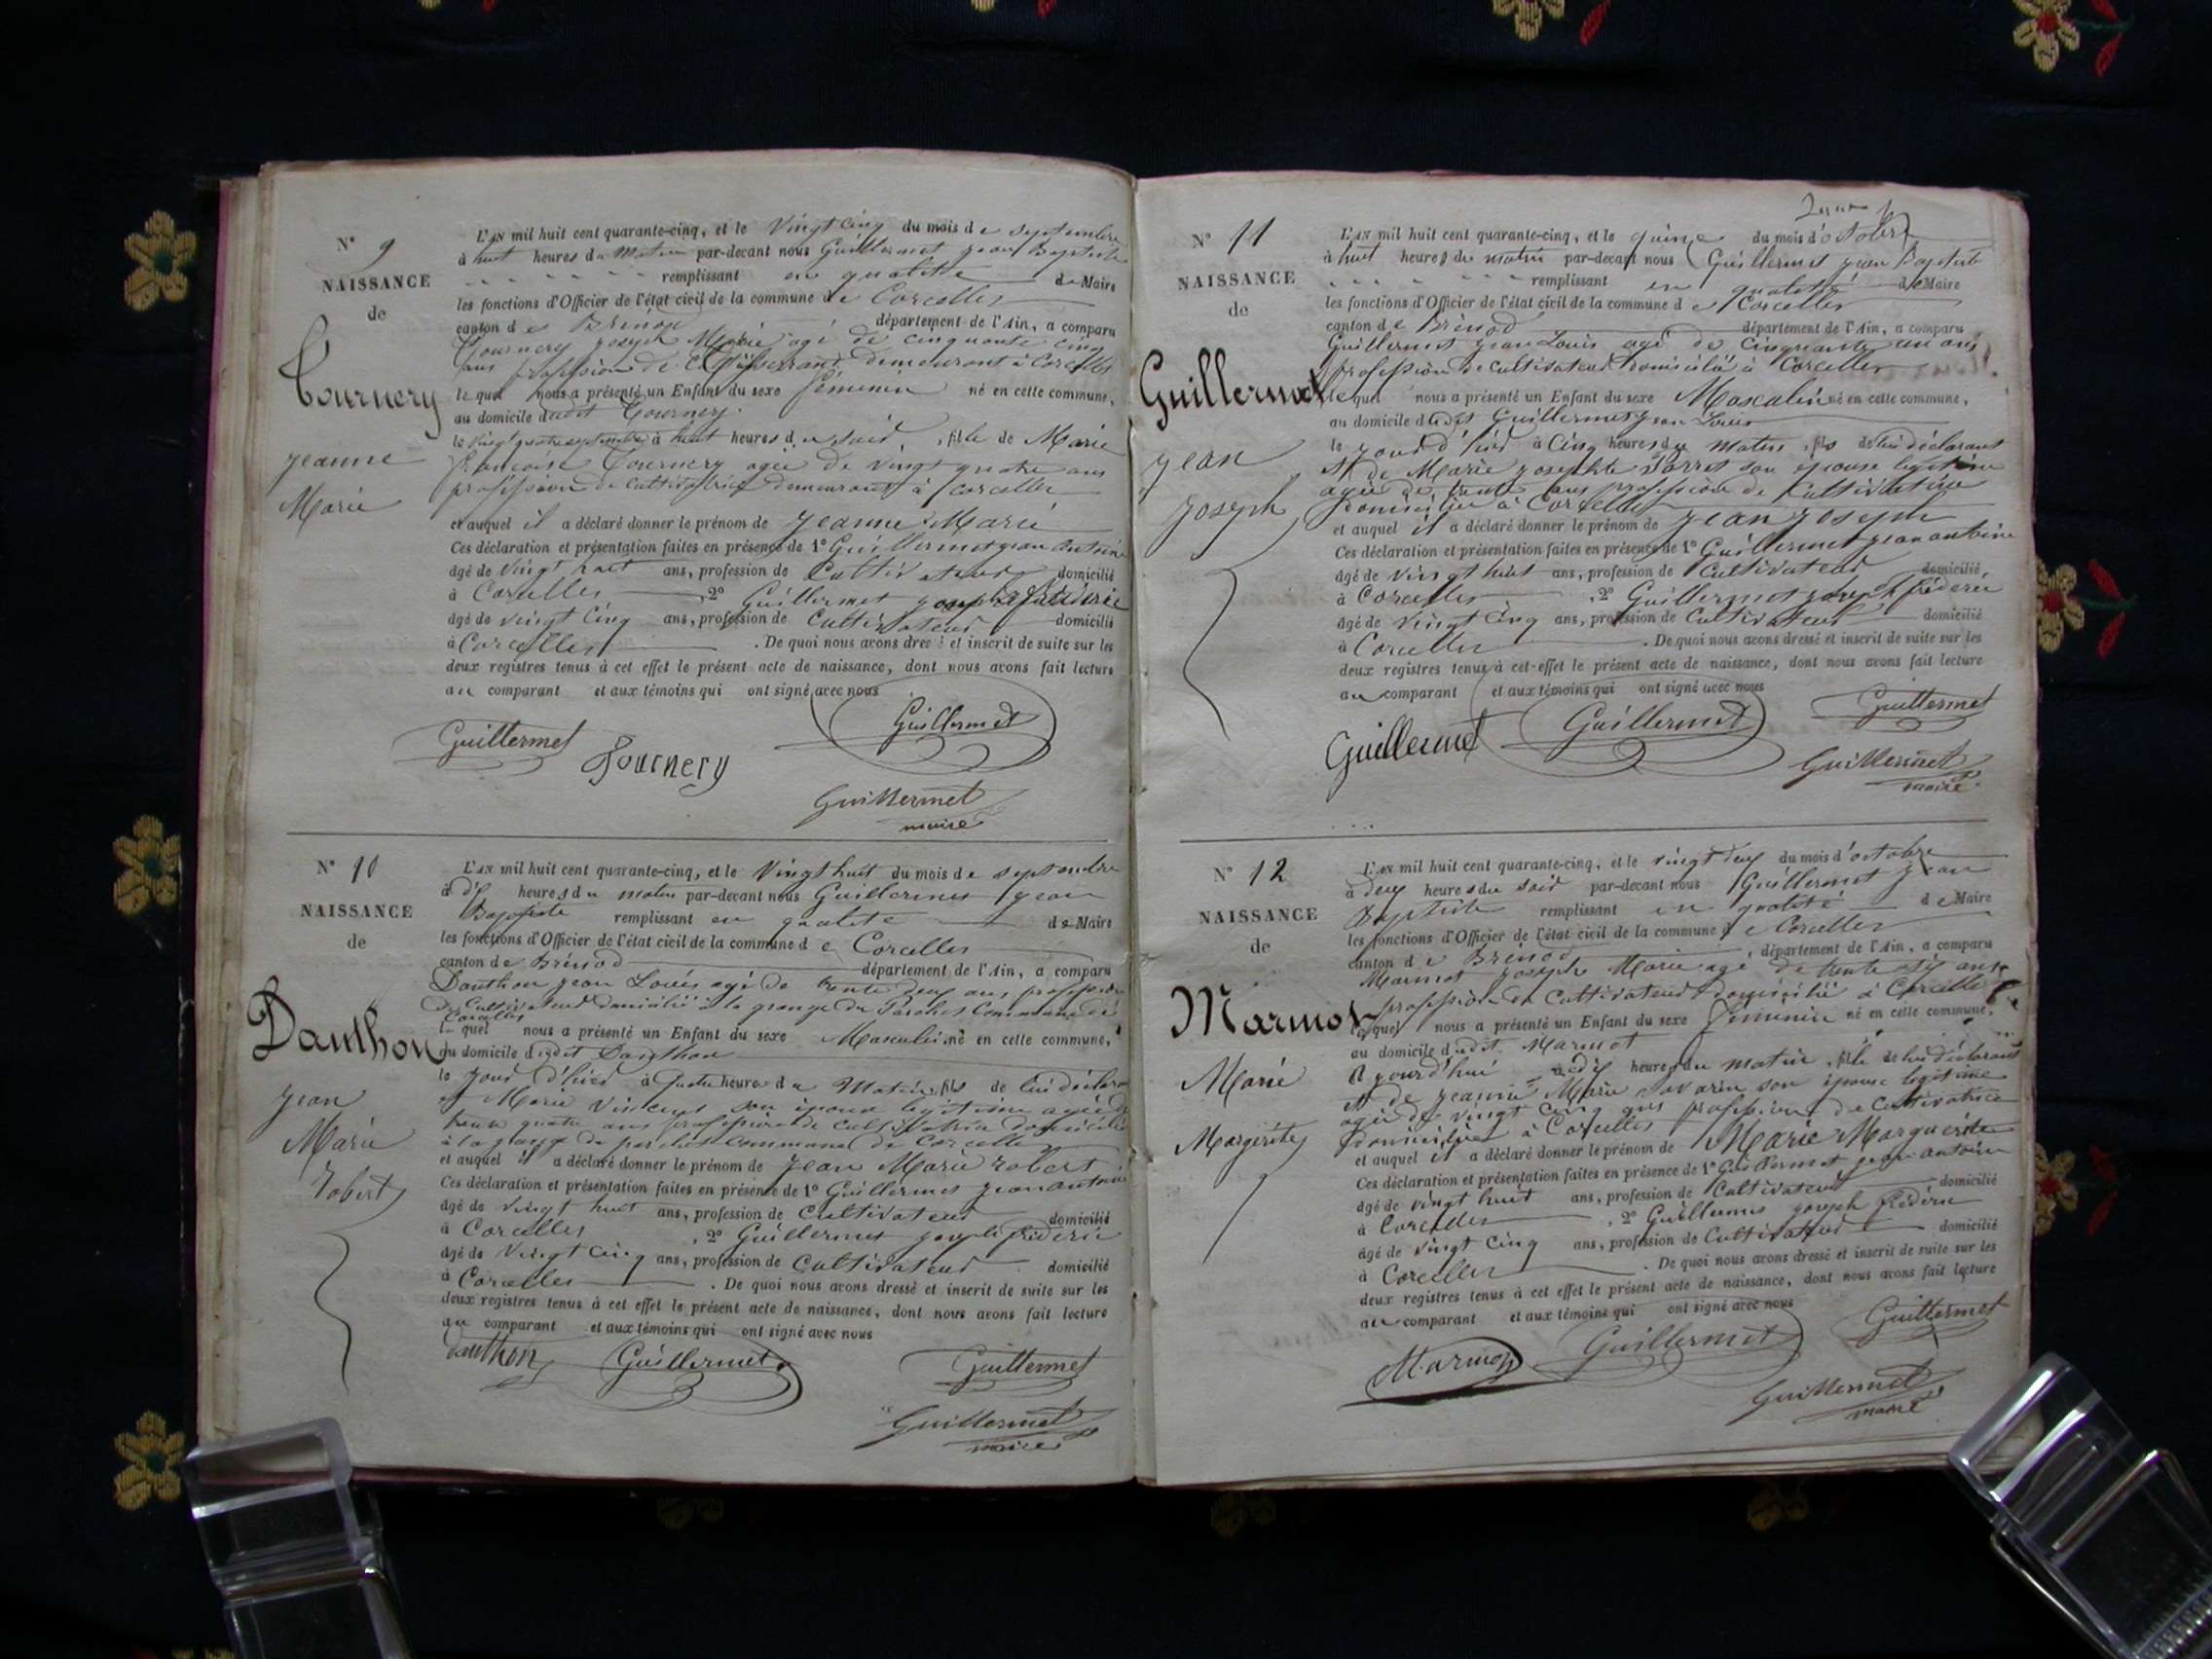 N° 9
NAISSANCE
de
Tournery
jeanne
Marie
L'AN mil huit cent quarante-cinq, et le vingt cinq du mois de septembre
à huit heures du matin par-devant nous Guillermet jean Baptiste
remplissant en qualité de Maire
les fonctions d'Officier de l'état civil de la commune de Corcelles
canton de Brénod département de l'Ain, a comparu
Tournery joseph Marie agé de cinquante cinq
ans profession de demeurant à Corcelles
le quel nous a présenté un Enfant du sexe féminin né en cette commune,
au domicile dudit Tournery
le vingt quatre septembre à huit heures du soir, fille de Marie
françoise Tournery agée de vingt quatre ans
profession de cultivatrice demeurant à Corcelles
et auquel il a déclaré donner le prénom de jeanne Marie
Ces déclaration et présentation faites en présence de 1° Guillermet jean antoine
âgé de vingt huit ans, profession de Cultivateur domicilié
à Corcelles , 2° Guillermet joseph frédéric
âgé de vingt cinq ans, profession de Cultivateur domicilié
à Corcelles . De quoi nous avons dressé et inscrit de suite sur les
deux registres tenus à cet effet le présent acte de naissance, dont nous avons fait lecture
au comparant et aux témoins qui ont signé avec nous
Guillermet Tournery Guillermet
Guillermet
maire
N° 10
NAISSANCE
de
Danthon
jean
Marie
robert
L'AN mil huit cent quarante-cinq, et le vingt huit du mois de septembre
à dix heures du matin par-devant nous Guillermet jean
Baptiste remplissant en qualité de Maire
les fonctions d'Officier de l'état civil de la commune de Corcelles
canton de Brénod département de l'Ain, a comparu
Danthon jean Louis agé de trente deux ans profession
de Cultivateur domicilié à la grange du Commune de
Corcelles
le quel nous a présenté un Enfant du sexe Masculin né en cette commune,
au domicile dudit Danthon
le jour d'hier à quatre heures du Matin, fils de lui déclarant
et Marie Vincent son épouse legitime agée de
trente quatre ans profession de cultivatrice domiciliée
à la grange de commune de Corcelles
et auquel il a déclaré donner le prénom de jean Marie robert
Ces déclaration et présentation faites en présence de 1° Guillermet jean antoine
âgé de vingt huit ans, profession de cultivateur domicilié
à Corcelles , 2° Guillermet joseph frédéric
âgé de vingt cinq ans, profession de Cultivateur domicilié
à Corcelles . De quoi nous avons dressé et inscrit de suite sur les
deux registres tenus à cet effet le présent acte de naissance, dont nous avons fait lecture
au comparant et aux témoins qui ont signé avec nous
Danthon Guillermet Guillermet
Guillermet
maire
N° 11
NAISSANCE
de
Guillermet
jean
joseph
L'AN mil huit cent quarante-cinq, et le quinze du mois d'octobre
à huit heures du matin par-devant nous Guillermet jean Baptiste
remplissant en qualité de Maire
les fonctions d'Officier de l'état civil de la commune de Corcelles
canton de Brénod département de l'Ain, a comparu
Guillermet jean Louis agé de cinquante un ans
profession de cultivateur domicilié à Corcelles
le quel nous a présenté un Enfant du sexe Masculin né en cette commune,
au domicile dudit Guillermet jean Louis
le jour d'hier à cinq heures du matin, fils de lui déclarant
et de Marie josephte son épouse legitime
agée de trente ans profession de Cultivatrice
domiciliée à Corcelles
et auquel il a déclaré donner le prénom de jean joseph
Ces déclaration et présentation faites en présence de 1° Guillermet jean antoine
âgé de vingt huit ans, profession de Cultivateur domicilié
à Corcelles , 2° Guillermet joseph frédéric
âgé de vingt cinq ans, profession de Cultivateur domicilié
à Corcelles . De quoi nous avons dressé et inscrit de suite sur les
deux registres tenus à cet effet le présent acte de naissance, dont nous avons fait lecture
au comparant et aux témoins qui ont signé avec nous
Guillermet Guillermet Guillermet
Guillermet
maire
N° 12
NAISSANCE
de
Marmot
Marie
Margerite
L'AN mil huit cent quarante-cinq, et le vingt deux du mois d'octobre
à deux heures du soir par-devant nous Guillermet jean
Baptiste remplissant en qualité de Maire
les fonctions d'Officier de l'état civil de la commune de Corcelles
canton de Brénod département de l'Ain, a comparu
Marmot joseph Marie agé de trente six ans
profession de cultivateur domicilié à Corcelles
le quel nous a présenté un Enfant du sexe féminin né en cette commune,
au domicile dudit Marmot
jourd'hui à dix heures du matin, fille de lui déclarant
et de jeanne Marie Savarin son épouse legitime
agée de vingt cinq ans profession de Cultivatrice
domiciliée à Corcelles
et auquel il a déclaré donner le prénom de Marie Marguerite
Ces déclaration et présentation faites en présence de 1° Guillermet jean antoine
âgé de vingt huit ans, profession de Cultivateur domicilié
à Corcelles , 2° Guillermet joseph frédéric
âgé de vingt cinq ans, profession de Cultivateur domicilié
à Corcelles . De quoi nous avons dressé et inscrit de suite sur les
deux registres tenus à cet effet le présent acte de naissance, dont nous avons fait lecture
au comparant et aux témoins qui ont signé avec nous
Marmot Guillermet Guillermet
Guillermet
maire